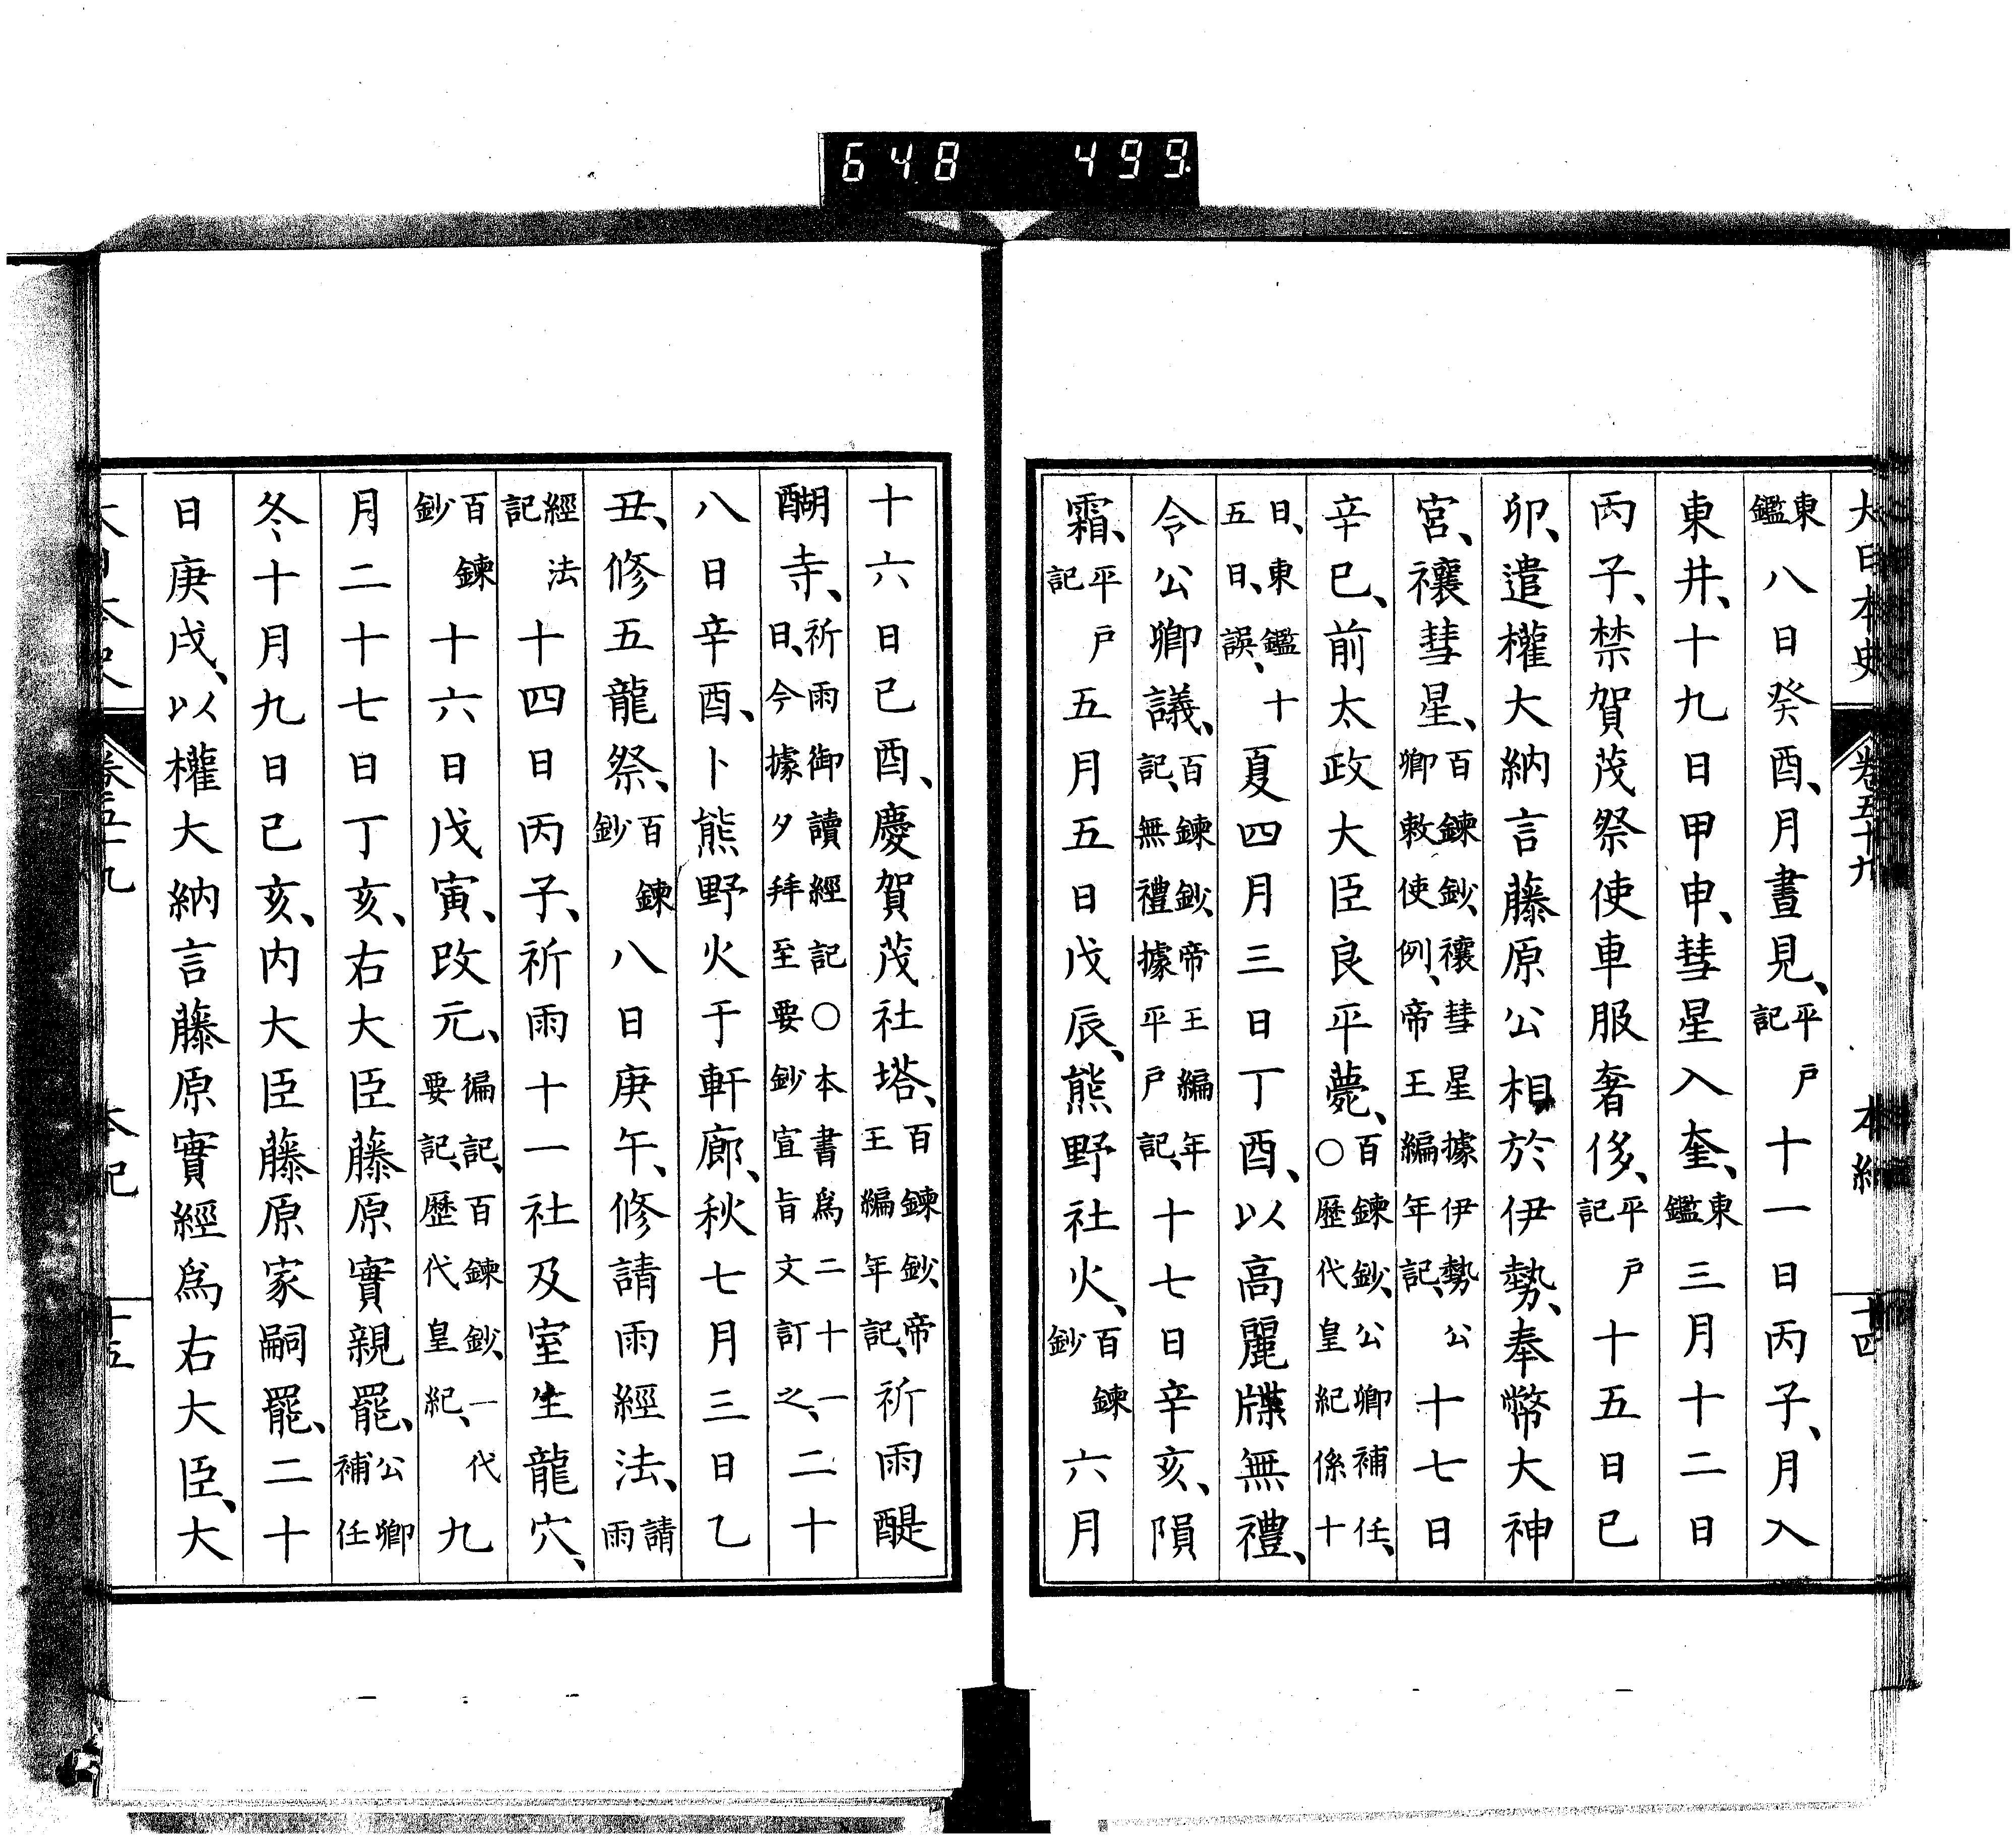 大日本史 卷五十九 本紀 十四
東鑑八日癸酉、月晝見、平戶記十一日丙子、月入
東井、十九日甲申、彗星入奎、東鑑三月十二日
丙子、禁賀茂祭使車服奢侈、平戶記十五日己
卯、遣權大納言藤原公相於伊勢、奉幣大神
宮、禳彗星、百鍊鈔、禳彗星據伊勢公卿敕使例、帝王編年記、十七日
辛巳、前太政大臣良平薨、百鍊鈔、公卿補任、○歷代皇紀係十
日、東鑑十五日、誤、夏四月三日丁酉、以高麗牒無禮、
令公卿議、百鍊鈔、帝王編年記、無禮據平戶記、十七日辛亥、隕
霜、平戶記五月五日戊辰、熊野社火、百鍊鈔六月
十六日己酉、慶賀茂社塔、百鍊鈔、帝王編年記、祈雨醍
醐寺、祈雨御讀經記○本書爲二十一日、今據夕拜至要鈔宣旨文訂之、二十
八日辛酉、卜熊野火于軒廊、秋七月三日乙
丑、修五龍祭、百鍊鈔八日庚午、修請雨經法、請雨
經法記十四日丙子、祈雨十一社及室生龍穴、
百鍊鈔十六日戊寅、改元、徧記、百鍊鈔、一代要記、歷代皇紀、九
月二十七日丁亥、右大臣藤原實親罷、公卿補任
冬十月九日己亥、內大臣藤原家嗣罷、二十
日庚戌、以權大納言藤原實經爲右大臣、大
大日本史 卷五十九 本紀 十五
648 499